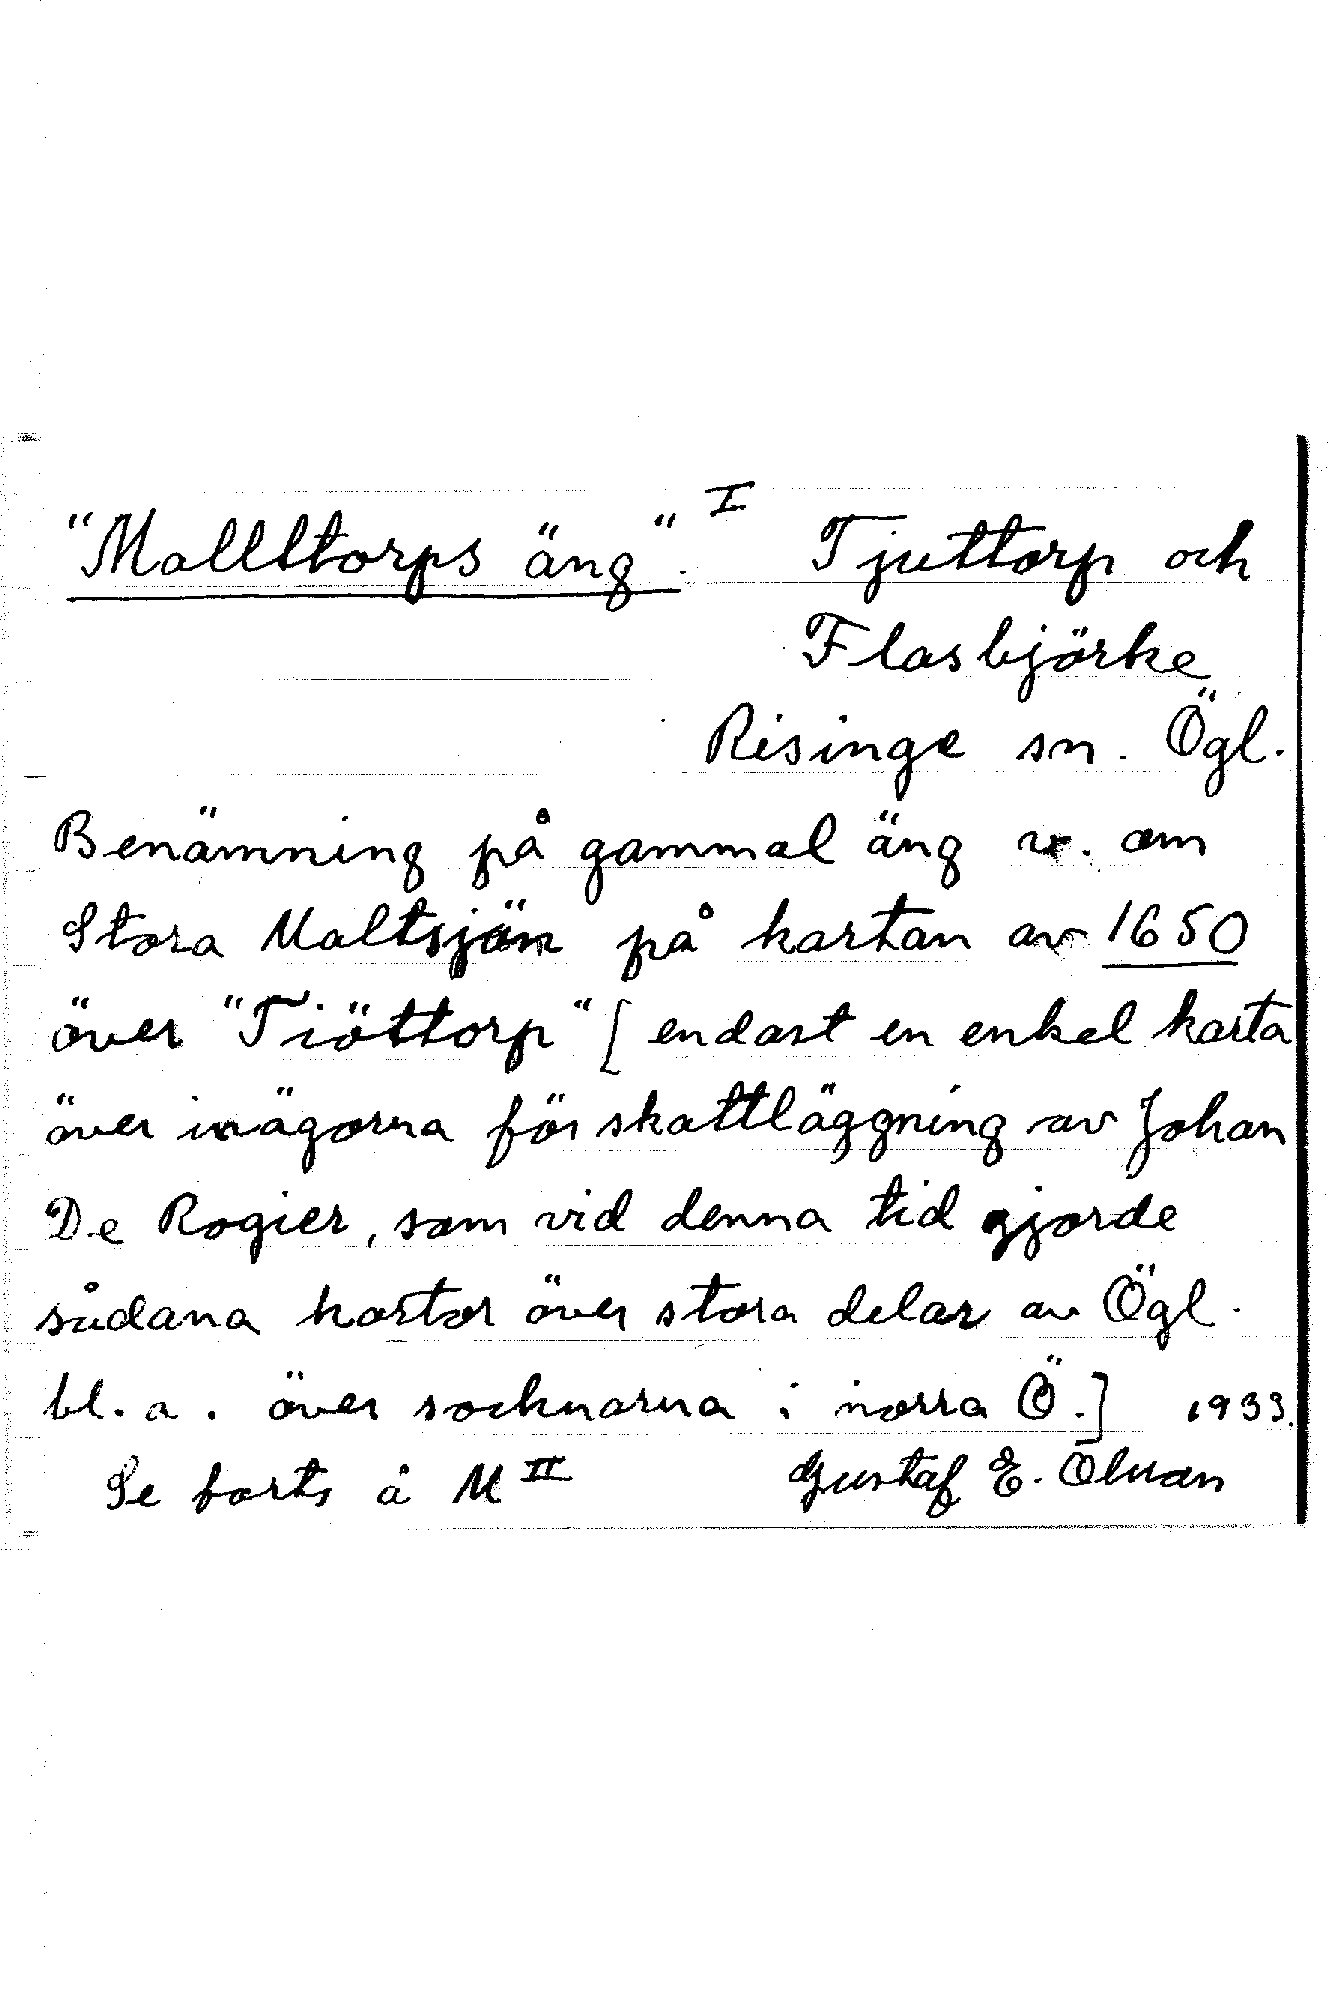 "Mallltorps äng". I Tjuttorp och
Flasbjörke
Risinge sn. Ögl.
Benämning på gammal äng v. om
Stora Maltsjön på kartan av 1650
över "Tiöttorp" [endast en enkel karta
över inägorna för skattläggning av Johan
De Rogier, som vid denna tid gjorde
sådana kartor över stora delar av Ögl.
bl. a. över socknarna i norra Ö.] 1933.
Se forts å M II Gustaf E. Ölman